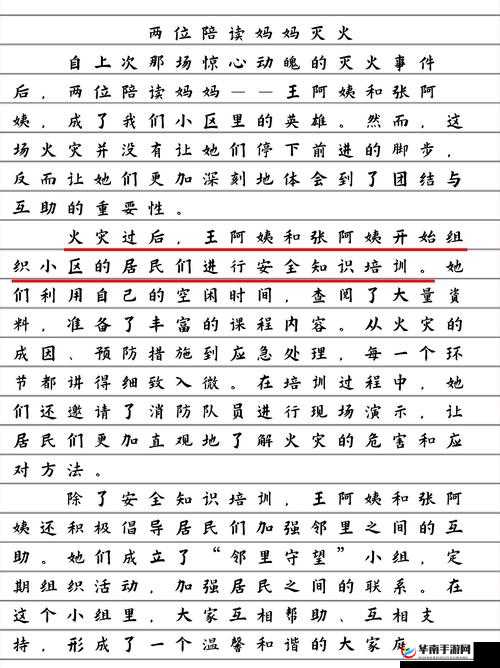 两位陪读妈妈灭火
自上次那场惊心动魄的灭火事件
后，两位陪读妈妈——王阿姨和张阿
姨，成了我们小区里的英雄。然而，这
场火灾并没有让她们停下前进的脚步，
反而让她们更加深刻地体会到了团结与
互助的重要性。
火灾过后，王阿姨和张阿姨开始组
织小区的居民们进行安全知识培训。她
们利用自己的空闲时间，查阅了大量资
料，准备了丰富的课程内容。从火灾的
成因、预防措施到应急处理，每一个环
节都讲得细致入微。在培训过程中，她
们还邀请了消防队员进行现场演示，让
居民们更加直观地了解火灾的危害和应
对方法。
除了安全知识培训，王阿姨和张阿
姨还积极倡导居民们加强邻里之间的互
助。她们成立了“邻里守望”小组，定
期组织活动，加强居民之间的联系。在
这个小组里，大家互相帮助、互相支
持，形成了一个温馨和谐的大家庭
华南手游网